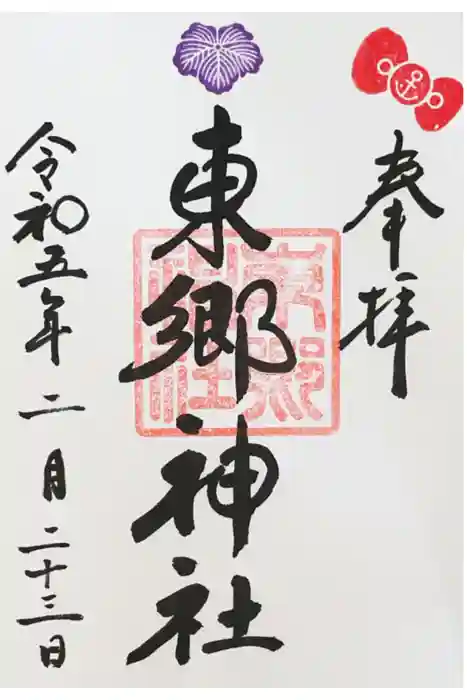 奉拝
東郷神社
東郷神社
令和五年二月二十三日